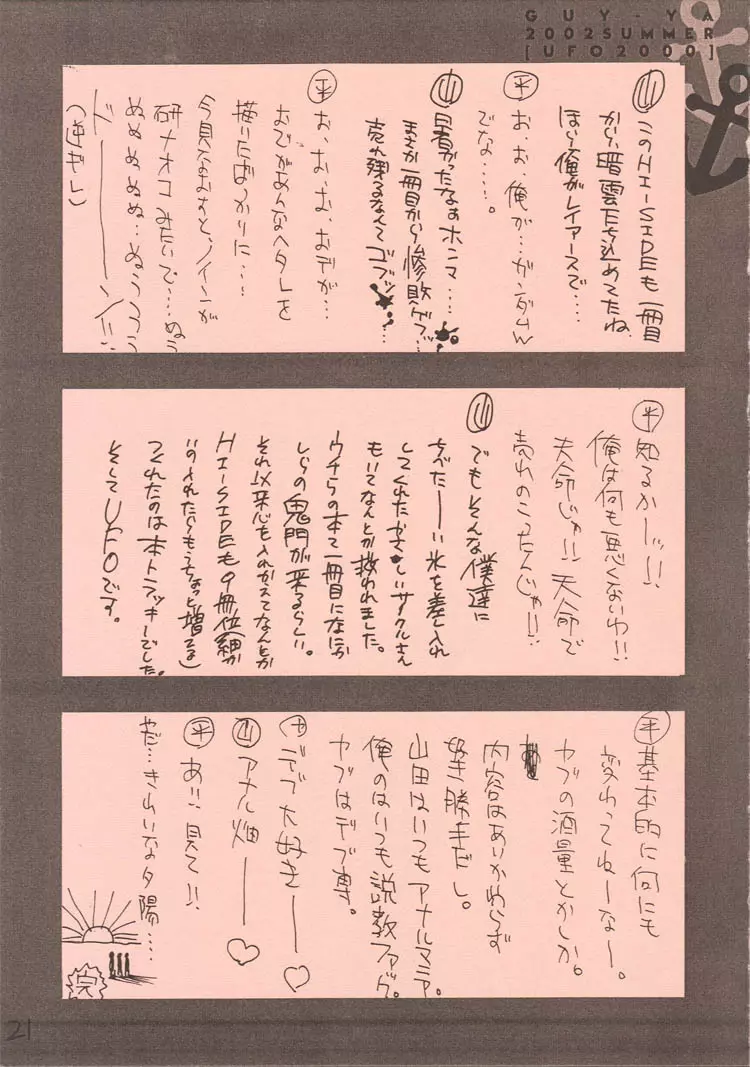 GUY-YA
2002SUMMER
[UFO2000]
山 このHI-SIDEも一冊目
から暗雲たち込めてたね
ほら俺がレイアースで....
平 お、お、俺が…ガンダムW
でな……。
山 暑かったなぁホンマ....
まさか一冊目から惨敗ゲフ…
売れ残るなんてゴブッ…
平 お、お、お、おデが…
おでがあんなヘタレを
描いたばっかりに…
今見なおすと、ノインが
研ナオコみたいで…ぬう
ぬぬぬぬぬ…ぬううう
平 知るかーッ!!
俺は何も悪くないわ!!
天命じゃ!!天命で
売れのこったんじゃ!!
山 でもそんな僕達に
ちべたーーい氷を差し入れ
してくれたやさしいサークルさん
もいてなんとか救われました。
ウチらの本て一冊目になにか
しらの鬼門が来るらしい。
それ以来心を入れかえてなんとか
HI-SIDEも9冊位(細か
いの入れたらもうちょっと増てる)
つくれたのは本トラッキーでした。
そしてUFOです。
平 基本的に何にも
変わってねーなー。
ヤブの酒量とかしか。
内容はあいかわらず
好き勝手だし。
山田はいつもアナルマニア。
俺のはいつも説教ファック。
ヤブはデブ専。
ヤ デブ大好きーー♡
山 アナル畑ーー♡
平 あ!!見て!!
やだ…きれいな夕陽....
完
21